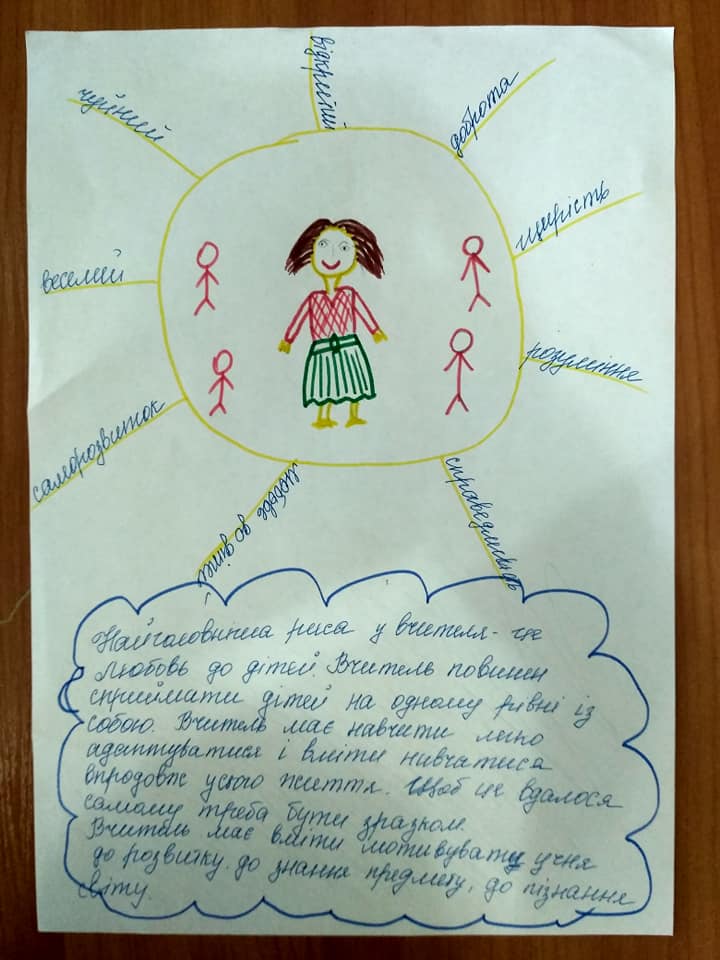 відкритий
чуйний
доброта
щирість
веселий
розуміння
саморозвиток
любов до дітей
справедливість
Найголовніша риса у вчителя - це
любовь до дітей. Вчитель повинен
сприймати дітей на одному рівні із
собою. Вчитель має навчити легко
адаптуватися і вміти навчатися
впродовж усього життя. Щоб це вдалося
самому треба бути зразком.
Вчитель має вміти мотивувати учня
до розвитку. до знання предмету, до пізнання
світу.